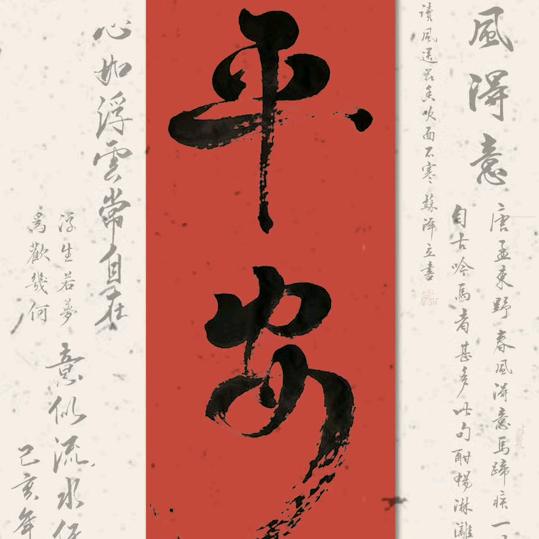 平安
風得意
唐孟東野春風得意馬蹄疾一
自古吟馬者甚多此句酣暢淋漓
讀風送花香吹面不寒蘇澤立書
心如浮雲常自在
浮生若夢
為歡幾何
意似流水任
己亥年